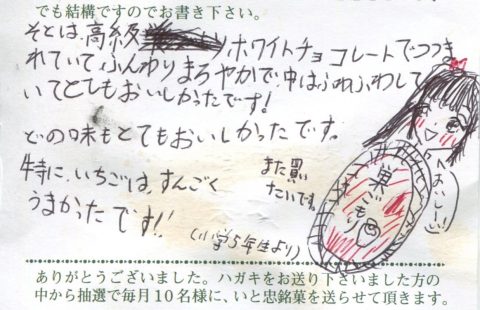 でも結構ですのでお書き下さい。
そとは、高級ホワイトチョコレートでつつま
れていて、ふんわりまろやかで、中はふわふわして
いてとてもおいしかったです!
どの味もとてもおいしかったです。
特に、いちごは、すんごく
うまかったです!!
また買い
たいです。
(小学5年生より)
おいしー!
巣ごもり
ありがとうございました。ハガキをお送り下さいました方の
中から抽選で毎月10名様に、いと忠銘菓を送らせて頂きます。